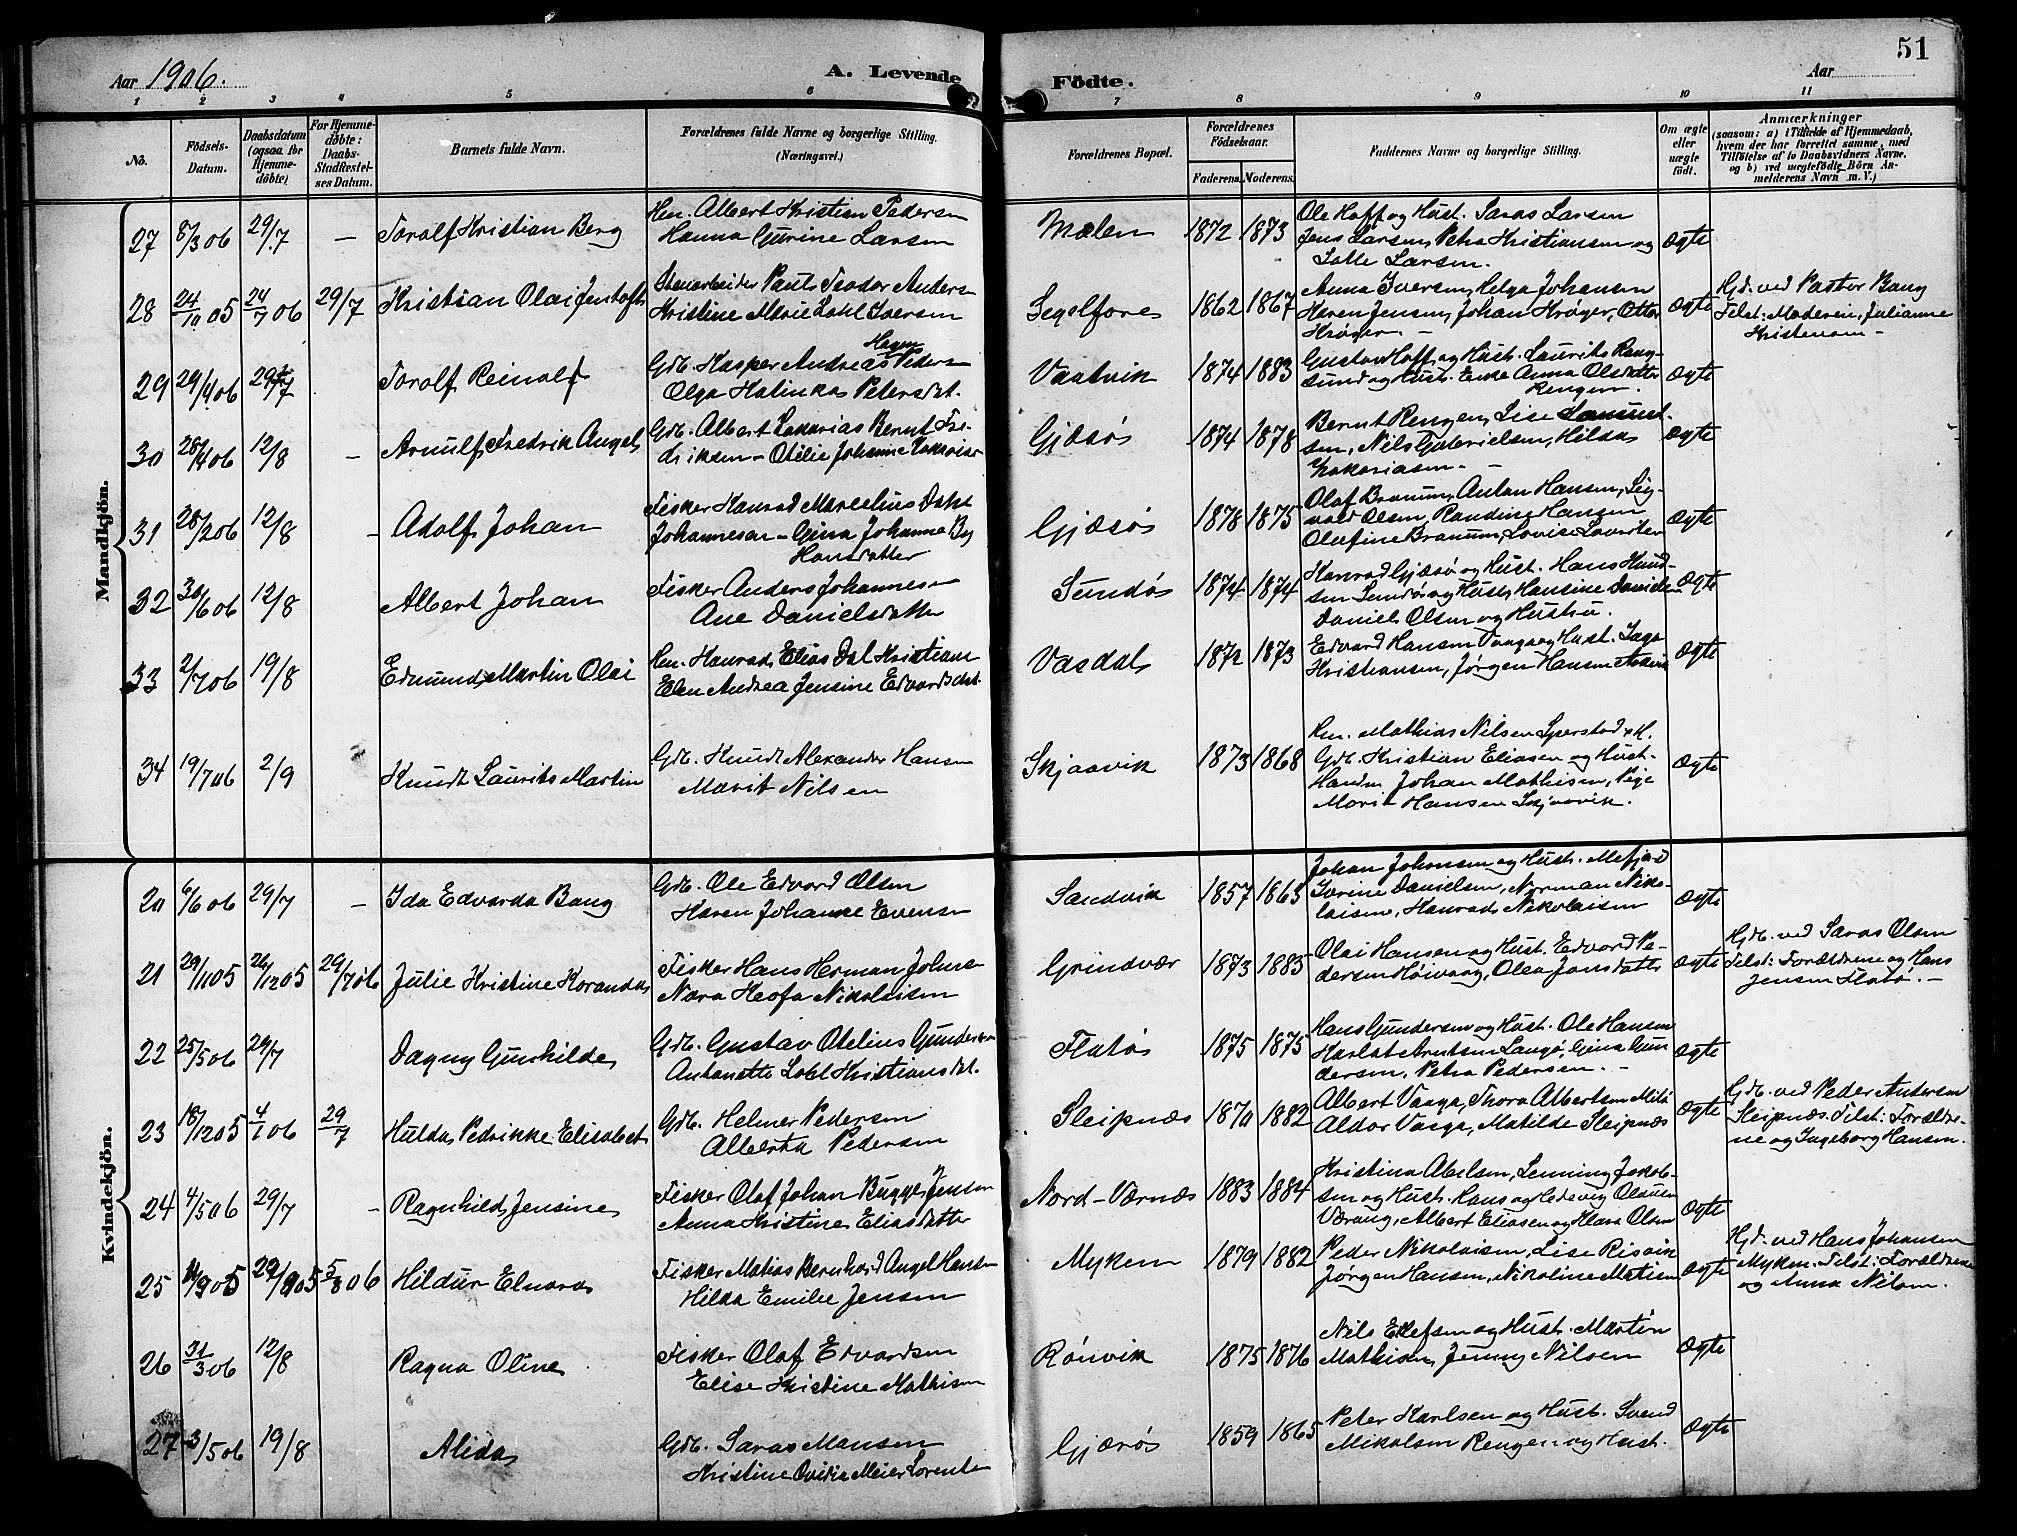 51
Aar 1906.
A. Levende Födte.
Aar
1 2 3 4 5 6 7 8 9 10 11
No.
Födsels-Datum.
Daabsdatum (ogsaa for Hjemmedöbte)
For Hjemmedöbte: Daabs-Stadfæstelses Datum.
Barnets fulde Navn.
Forældrenes fulde Navne og borgerlige Stilling.
(Næringsvei.)
Forældrenes Bopæl.
Forældrenes Födselsaar.
Faderens. Moderens.
Faddernes Navne og borgerlige Stilling.
Om ægte eller uægte födt.
Anmærkninger
(saasom: a) i Tilfælde af Hjemmedaab, hvem der har forrettet samme, med Tilföielse af to Daabsvidners Navne, og b) ved uægtefödte Börn Anmelderens Navn m. V.)
Mandkjön.
27 8/3 06 29/7 – Torolf Kristian Berg
Hm. Albert Kristian Pedersen
Hanna Gurine Larsen
Mælen 1872 1873
Ole Hoff og Hust. Saras Larsen
Jens Larsen, Petra Kristiansen og
Lotte Larsen.
Ægte
28 24/10 05 24/7 06 29/7 Kristian Olai Jentoft
Stenarbeider Paul Teodor Anders
Kristine Marie Dahl Iversen
Segelfore 1862 1867
Anna Iversen, Helga Johansen
Karen Jensen, Johan Krøger, Otter
Krøger
Ægte
Hjd. ved Pastor Bang
Tilst: Moderen, Julianne
Kristensen –
29 29/4 06 29/7 Torolf Reinolf
Gdb. Kasper Andreas Hagen Peders
Olga Halinka Petersdat.
Vaatvik 1874 1883
Gustav Hoff og Hust. Laurits Rang-
sund og Hust. Enke Anna Olsdatter
Rengen
Ægte
30 28/4 06 12/8 – Arnulf Fredrik Angel
Gdb. Albert Zakarias Bernt Fre-
driksen – Otelie Johanne Zakarias
Gjæsø 1874 1878
Bernt Rengen, Lise Samuel-
sen, Nils Gabrielsen, Hilda
Zakariasen. –
Ægte
31 28/2 06 12/8 – Adolf Johan
Fisker Konrad Marselius Dahl
Johannesen – Gina Johanna By
Hansdatter
Gjæsø 1878 1875
Olaf Branum, Anton Hansen, Sig-
vald Olsen, Randine Hansen
Olufine Branum, Lovise Lauritsen
Ægte
32 30/6 06 12/8 Albert Johan
Fisker Anders Johannesen
Ane Danielsdatter
Sundø 1874 1874
Konrad Gjæsø og Hust. Hans Knud-
sen Sundø og Hust, Hansine Daniels
Daniel Olsen og Hustru.
Ægte
33 2/7 06 19/8 Edmund Martin Olai
Hm. Konrad Elias Dal Kristians
Elen Andrea Jensine Edvardsdat.
Vasdal 1872 1873
Edvard Hansen Vaaga og Hust. Inga
Kristiansen, Jørgen Hansen
Ægte
34 19/7 06 2/9 Knudt Laurits Martin
Gdb. Knudt Alexander Hansen
Marit Nilsen
Skjaavik 1873 1868
Hm. Mathias Nilsen Sperstad & H.
Gdb. Kristian Eliasen og Hust.
Handm. Johan Mathisen, Pige
Marit Hansen Skjaavik.
Ægte
Kvindekjön.
20 6/6 06 29/7 – Ida Edvarda Bang
Gdb. Ole Edvard Olsen
Karen Johanne Evensen
Sandvik 1857 1863
Johan Johansen og Hust. Mefjord
Iverine Danielsen, Norman Niko-
laisen, Konrad Nikolaisen
Ægte
21 29/11 05 26/12 05 29/7 06 Julie Kristine Koranda
Fisker Hans Herman Johns
Nora Heofa Nikolaisen
Grindvær 1873 1885
Olai Hansen og Hust. Edvard Pe-
dersen Høivaag, Olea Jonsdatter
Ægte
Hjdb. ved Saras Olsen
Tilst: Forældrene og Hans
Jensen Flatø. –
22 25/5 06 29/7 Dagny Gunhilde
Gdb. Gustav Otelius Gundersen
Antonette Dahl Kristiansdat.
Flatø 1875 1875
Hans Gundersen og Hust. Ole Hansen
Karlot Arntsen Langø, Gina Gun
dersen, Petra Pedersen. –
Ægte
23 18/12 05 4/1 06 29/7 Hulda Pedrikke Elisabet
Gdb. Helmer Pedersen
Alberta Pedersen
Sleipnæs 1870 1882
Albert Vaaga, Thora Albertsen Milø
Aldor Vaaga, Matilde Sleipnæs
Ægte
Gdb. ved Peder Andersen
Sleipnæs. Tilst: Forældre-
ne og Ingeborg Hansen.
24 4/5 06 29/7 – Ragnhild Jensine
Fisker Olaf Johan Bugge Jensen
Anna Kristine Eliasdatter
Nord-Værnæs 1883 1884
Kristina Abelsen, Lenning Jakob-
sen og Hust. Hans og Hedevig Olausen
Værang, Albert Eliasen og Klara Olsen
Ægte
25 11/9 05 29/9 05 5/8 06 Hildur Elnora
Fisker Matias Bernhard Angel Hansen
Hilda Emilie Jensen
Myken 1879 1882
Peder Nikolaisen, Lise Risvik
Jørgen Hansen, Nikoline Matisen
Ægte
Hjd. ved Hans Johansen
Myken. Tilst: Forældrene
og Anna Nilsen.
26 31/3 06 12/8 Ragna Oline
Fisker Olaf Edvardsen
Elise Kristine Mathisen
Rønvik 1875 1876
Nils Ellefsen og Hust. Martin
Mathisen, Jenny Nilsen
Ægte
27 3/5 06 19/8 Alida
Gdb. Saras Monsen
Kristine Ovidia Meier Lorents
Gjærø 1859 1865
Peter Karlsen og Hust. Svend
Mikalsen Rengen og Hust.
Ægte